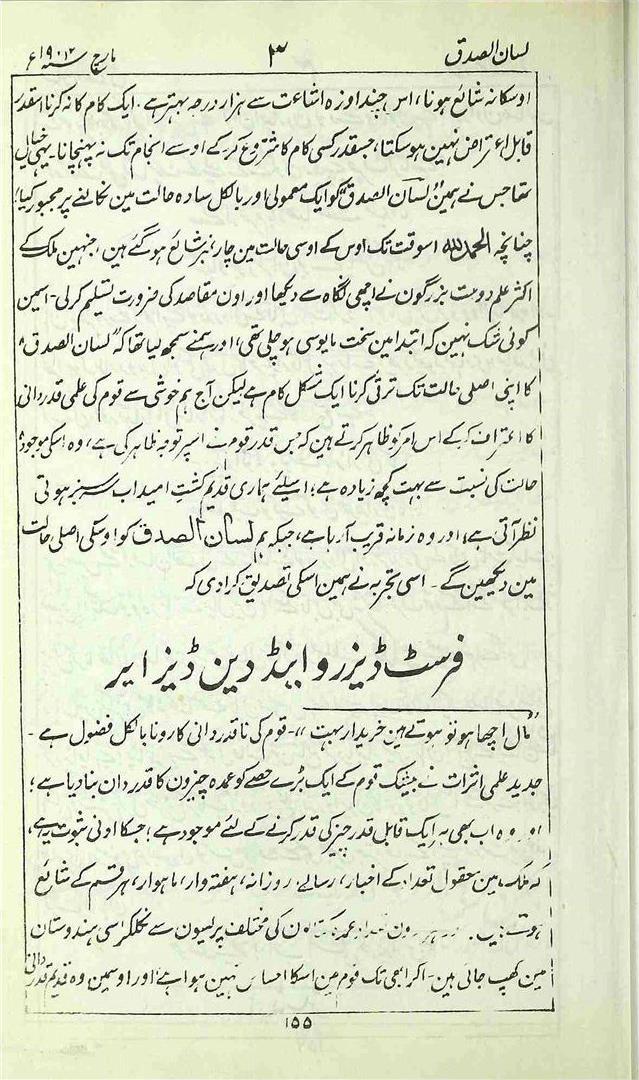 لسان الصدق ۳ مارچ سنہ ۱۹۰۴ء
اوسکا نہ شائع ہونا، اس چند اوزہ اشاعت سے ہزار درجہ بہتر ہے۔ ایک کام کا نہ کرنا اسقدر
قابل اعتراض نہین ہوسکتا، جسقدر کسی کام کا شروع کرکے اوسے انجام تک نہ پہنچانا۔ یہی خیال
تھا جس نے ہمین "لسان الصدق" کو ایک معمولی اور بالکل سادہ حالت مین نکالنے پر مجبور کیا؛
چنانچہ الحمدللہ اسوقت تک اوس کے اوسی حالت مین چار نمبر شائع ہوگئے ہین، جنہین ملک کے
اکثر علم دوست بزرگون نے اچھی نگاہ سے دیکھا اور اون مقاصد کی ضرورت تسلیم کرلی۔ اسمین
کوئی شک نہین کہ ابتدا مین سخت مایوسی ہوچلی تھی، اور ہمنے سمجھ لیا تھا کہ "لسان الصدق"
کا اپنی اصلی حالت تک ترقی کرنا ایک مشکل کام ہے لیکن آج ہم خوشی سے قوم کی علمی قدردانی
کا اعتراف کرکے اس امر کو ظاہر کرتے ہین کہ جس قدر قوم نے اسپر توجہ ظاہر کی ہے، وہ اسکی موجودہ
حالت کی نسبت سے بہت کچھ زیادہ ہے؛ اسلئے ہماری قدیم کشتِ امید اب سرسبز ہوتی
نظر آتی ہے، اور وہ زمانہ قریب آرہا ہے، جبکہ ہم لسان الصدق کو اوسکی اصلی حالت
مین دیکھین گے۔ اسی تجربہ نے ہمین اسکی تصدیق کرادی کہ
فرسٹ ڈیزرو اینڈ دین ڈیزایر
"مال اچھا ہو تو ہوتے ہین خریدار بہت"۔ قوم کی ناقدردانی کا رونا بالکل فضول ہے۔
جدید علمی اثرات نے بیشک قوم کے ایک بڑے حصے کو عمدہ چیزون کا قدردان بنا دیا ہے؛
اور وہ اب بھی ہر ایک قابل قدر چیز کی قدر کرنے کے لئے موجود ہے؛ جسکا ادنی ثبوت یہ ہے،
کہ ملک مین معقول تعداد کے اخبار، رسالے، روزانہ، ہفتہ وار، ماہوار، ہر قسم کے شائع
ہوتے ہین۔ عمدہ کتابون کی مختلف پریسون سے نکلکر اسی ہندوستان
مین کھپ جاتی ہین۔ اگر ابھی تک قوم مین اسکا احساس نہین ہوا ہے اور اوسمین وہ قدیم قدردانی
۱۵۵